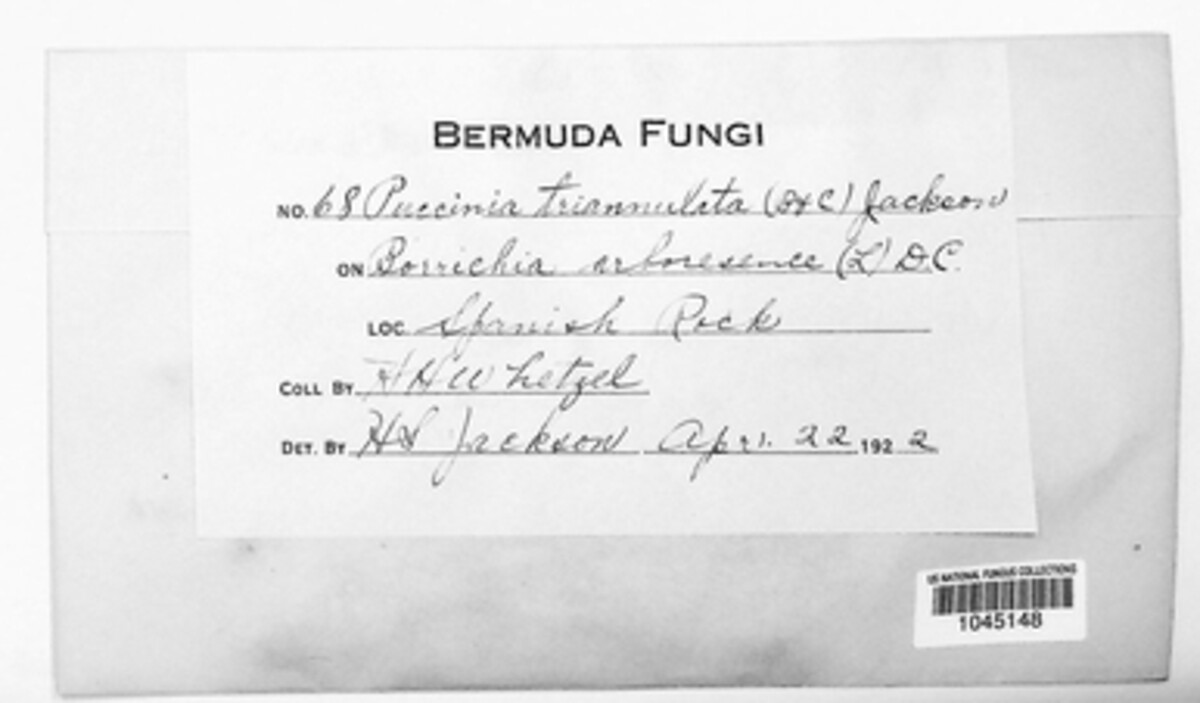 BERMUDA FUNGI
NO. 68 Puccinia triannulata (B&C) Jackson
ON Borrichia arboresence (L) D.C.
LOC Spanish Rock
COLL BY H H Whetzel
DET. BY HS Jackson Apri. 22 1922
US NATIONAL FUNGUS COLLECTIONS
1045148